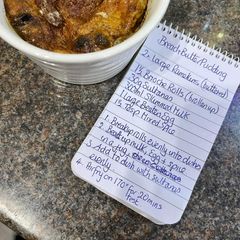 Brioch Butter Pudding
2 Large Ramekins (buttered)
Brioche Rolls (balled up)
Sultanas
Skimmed Milk
1 Large Beaten Egg
1/2 tbsp Mixed Spice
1. Break up rolls evenly into dishes
2. Beat up milk, egg + spice
in a jug,
3. Add to dish with sultanas
evenly
4. Airfry on 170° for 20mins